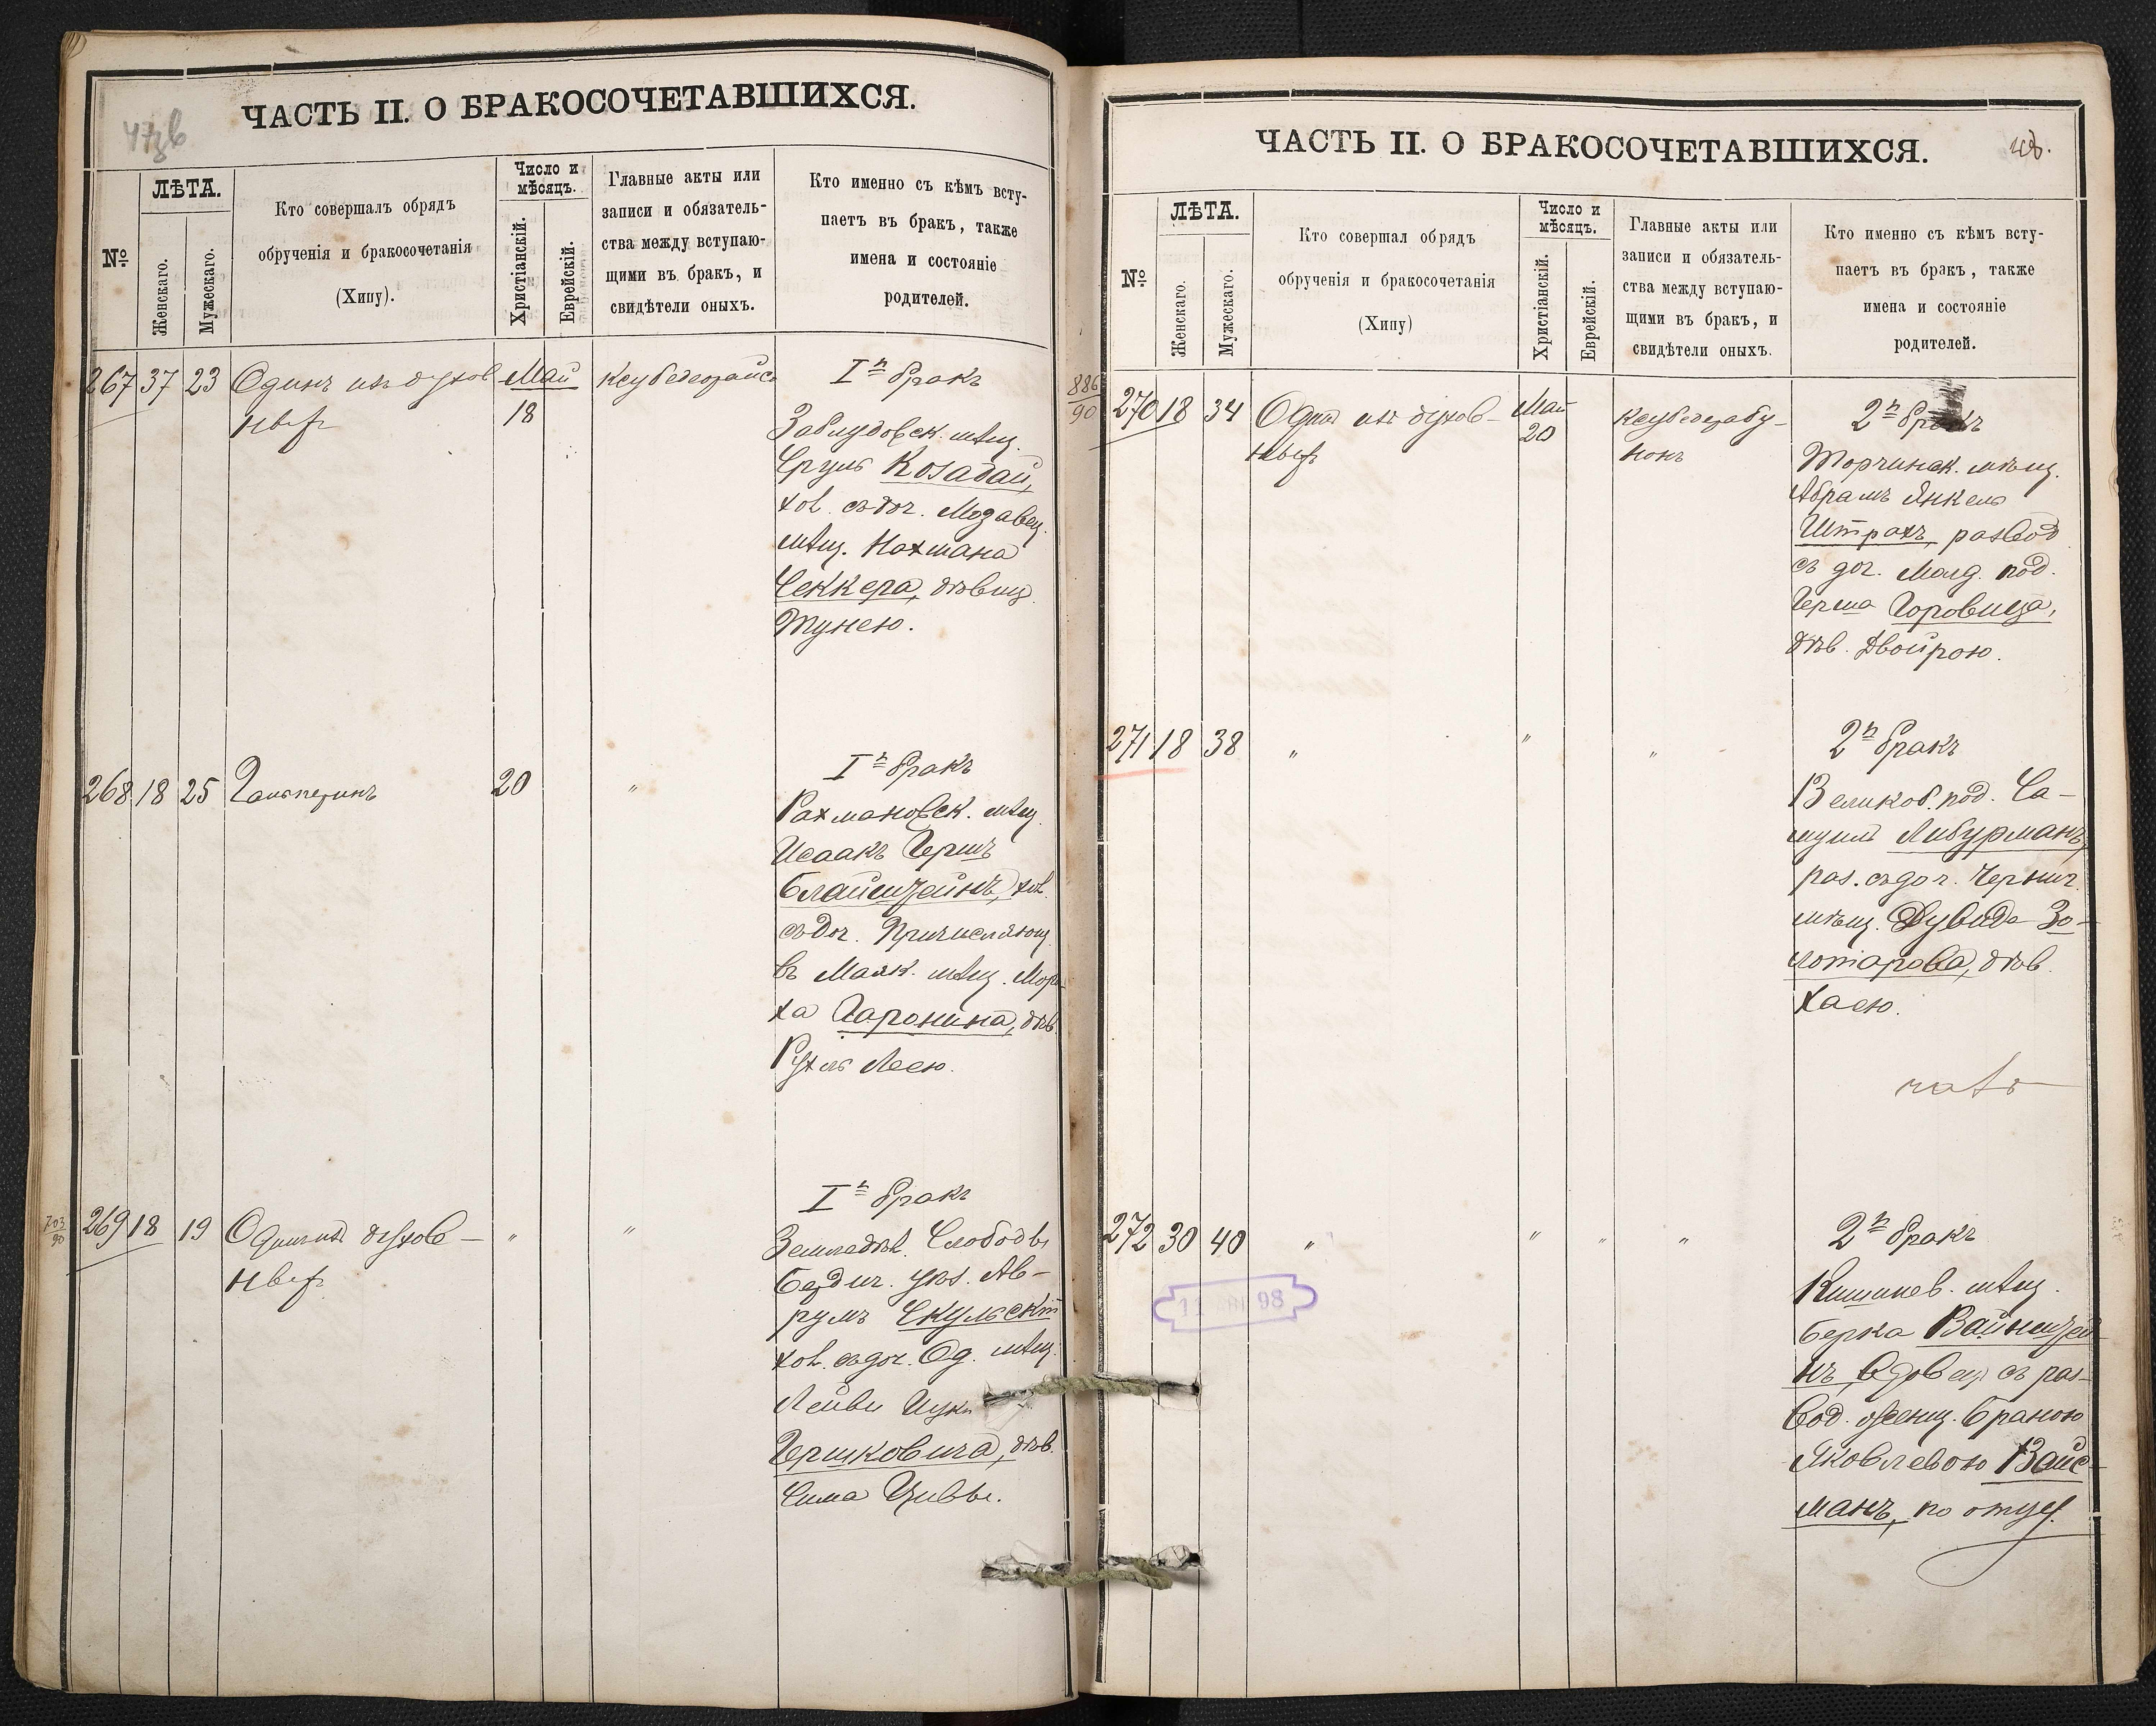 ЧАСТЬ II. О БРАКОСОЧЕТАВШИХСЯ.
№
ЛѢТА.
Женскаго.
Мужескаго.
Кто совершалъ обрядъ
обрученія и бракосочетанія
(Хипу).
Число и
мѣсяцъ.
Христіанскій.
Еврейскій.
Главные акты или
записи и обязатель-
ства между вступаю-
щими въ бракъ, и
свидѣтели оныхъ.
Кто именно съ кѣмъ всту-
паетъ въ бракъ, также
имена и состояніе
родителей.
267 37 23 Одинъ изъ духов
Май
18
Iй бракъ
Заблудовск. мѣщ.
Сруль Козадай,
хол. съ доч.
мѣщ. Нахмана
Секкера, дѣвиц.
Тунею.
268 18 25 Гальперинъ 20 "
Iй бракъ
Рахмановск. мѣщ.
Исаакъ Гершъ
Блайштейнъ, хол.
съ доч. Причисляющ.
въ Маяк. мѣщ. Морд
ха Гаронина, дѣв.
Рухль Леею.
703
90
269 18 19 Одинъ изъ духов-
" "
Iй бракъ
Земледѣл. Слободы
Бердич. уѣз. Ав-
румъ Скульскій
хол. съ доч. Од. мѣщ.
Лейви Ицк
Гершковича, дѣв.
Сима Цивьи.
ЧАСТЬ II. О БРАКОСОЧЕТАВШИХСЯ.
48.
№
ЛѢТА.
Женскаго.
Мужескаго.
Кто совершал обрядъ
обрученія и бракосочетанія
(Хипу)
Число и
мѣсяцъ.
Христіанскій.
Еврейскій.
Главные акты или
записи и обязатель-
ства между вступаю-
щими въ бракъ, и
свидѣтели оныхъ.
Кто именно съ кѣмъ всту-
паетъ въ бракъ, также
имена и состояніе
родителей.
886
90
270 18 34 Один из духов-
Май
20
2й бракъ
Торчинск. мѣщ.
Абрамъ Янкель
Штрахъ, развод
съ доч. Молд. под.
Герша Горовица,
дѣв. Двойрою.
271 18 38 " " "
2й бракъ
Великоб. под. Са-
муилъ Либурманъ,
раз. съ доч. Черниг.
мѣщ. Дувида Зо-
лотарова, дѣв.
Хаею.
272 30 40 " " " "
2й бракъ
Кишинев. мѣщ.
Берка Вайнштей
нъ, вдовец съ раз-
вод. женщ. Браною
Яковлевою Вайс-
манъ, по отцу.
98